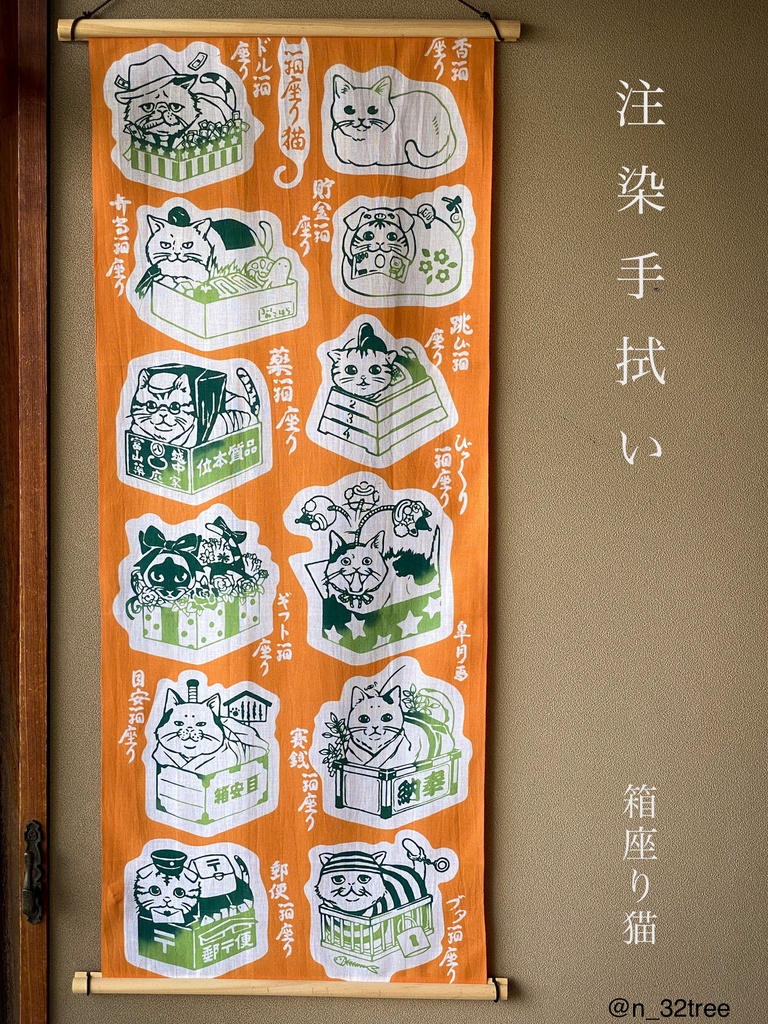 注染手拭い
箱座り猫
@n_32tree
箱座り猫
香箱座り
ドル箱座り
貯金箱座り
弁当箱座り
跳び箱座り
2
3
4
薬箱座り
位本質品
びっくり箱座り
ギフト箱座り
目安箱座り
箱安目
賽銭箱座り
納奉
郵便箱座り
〒
郵〒便
ブタ箱座り